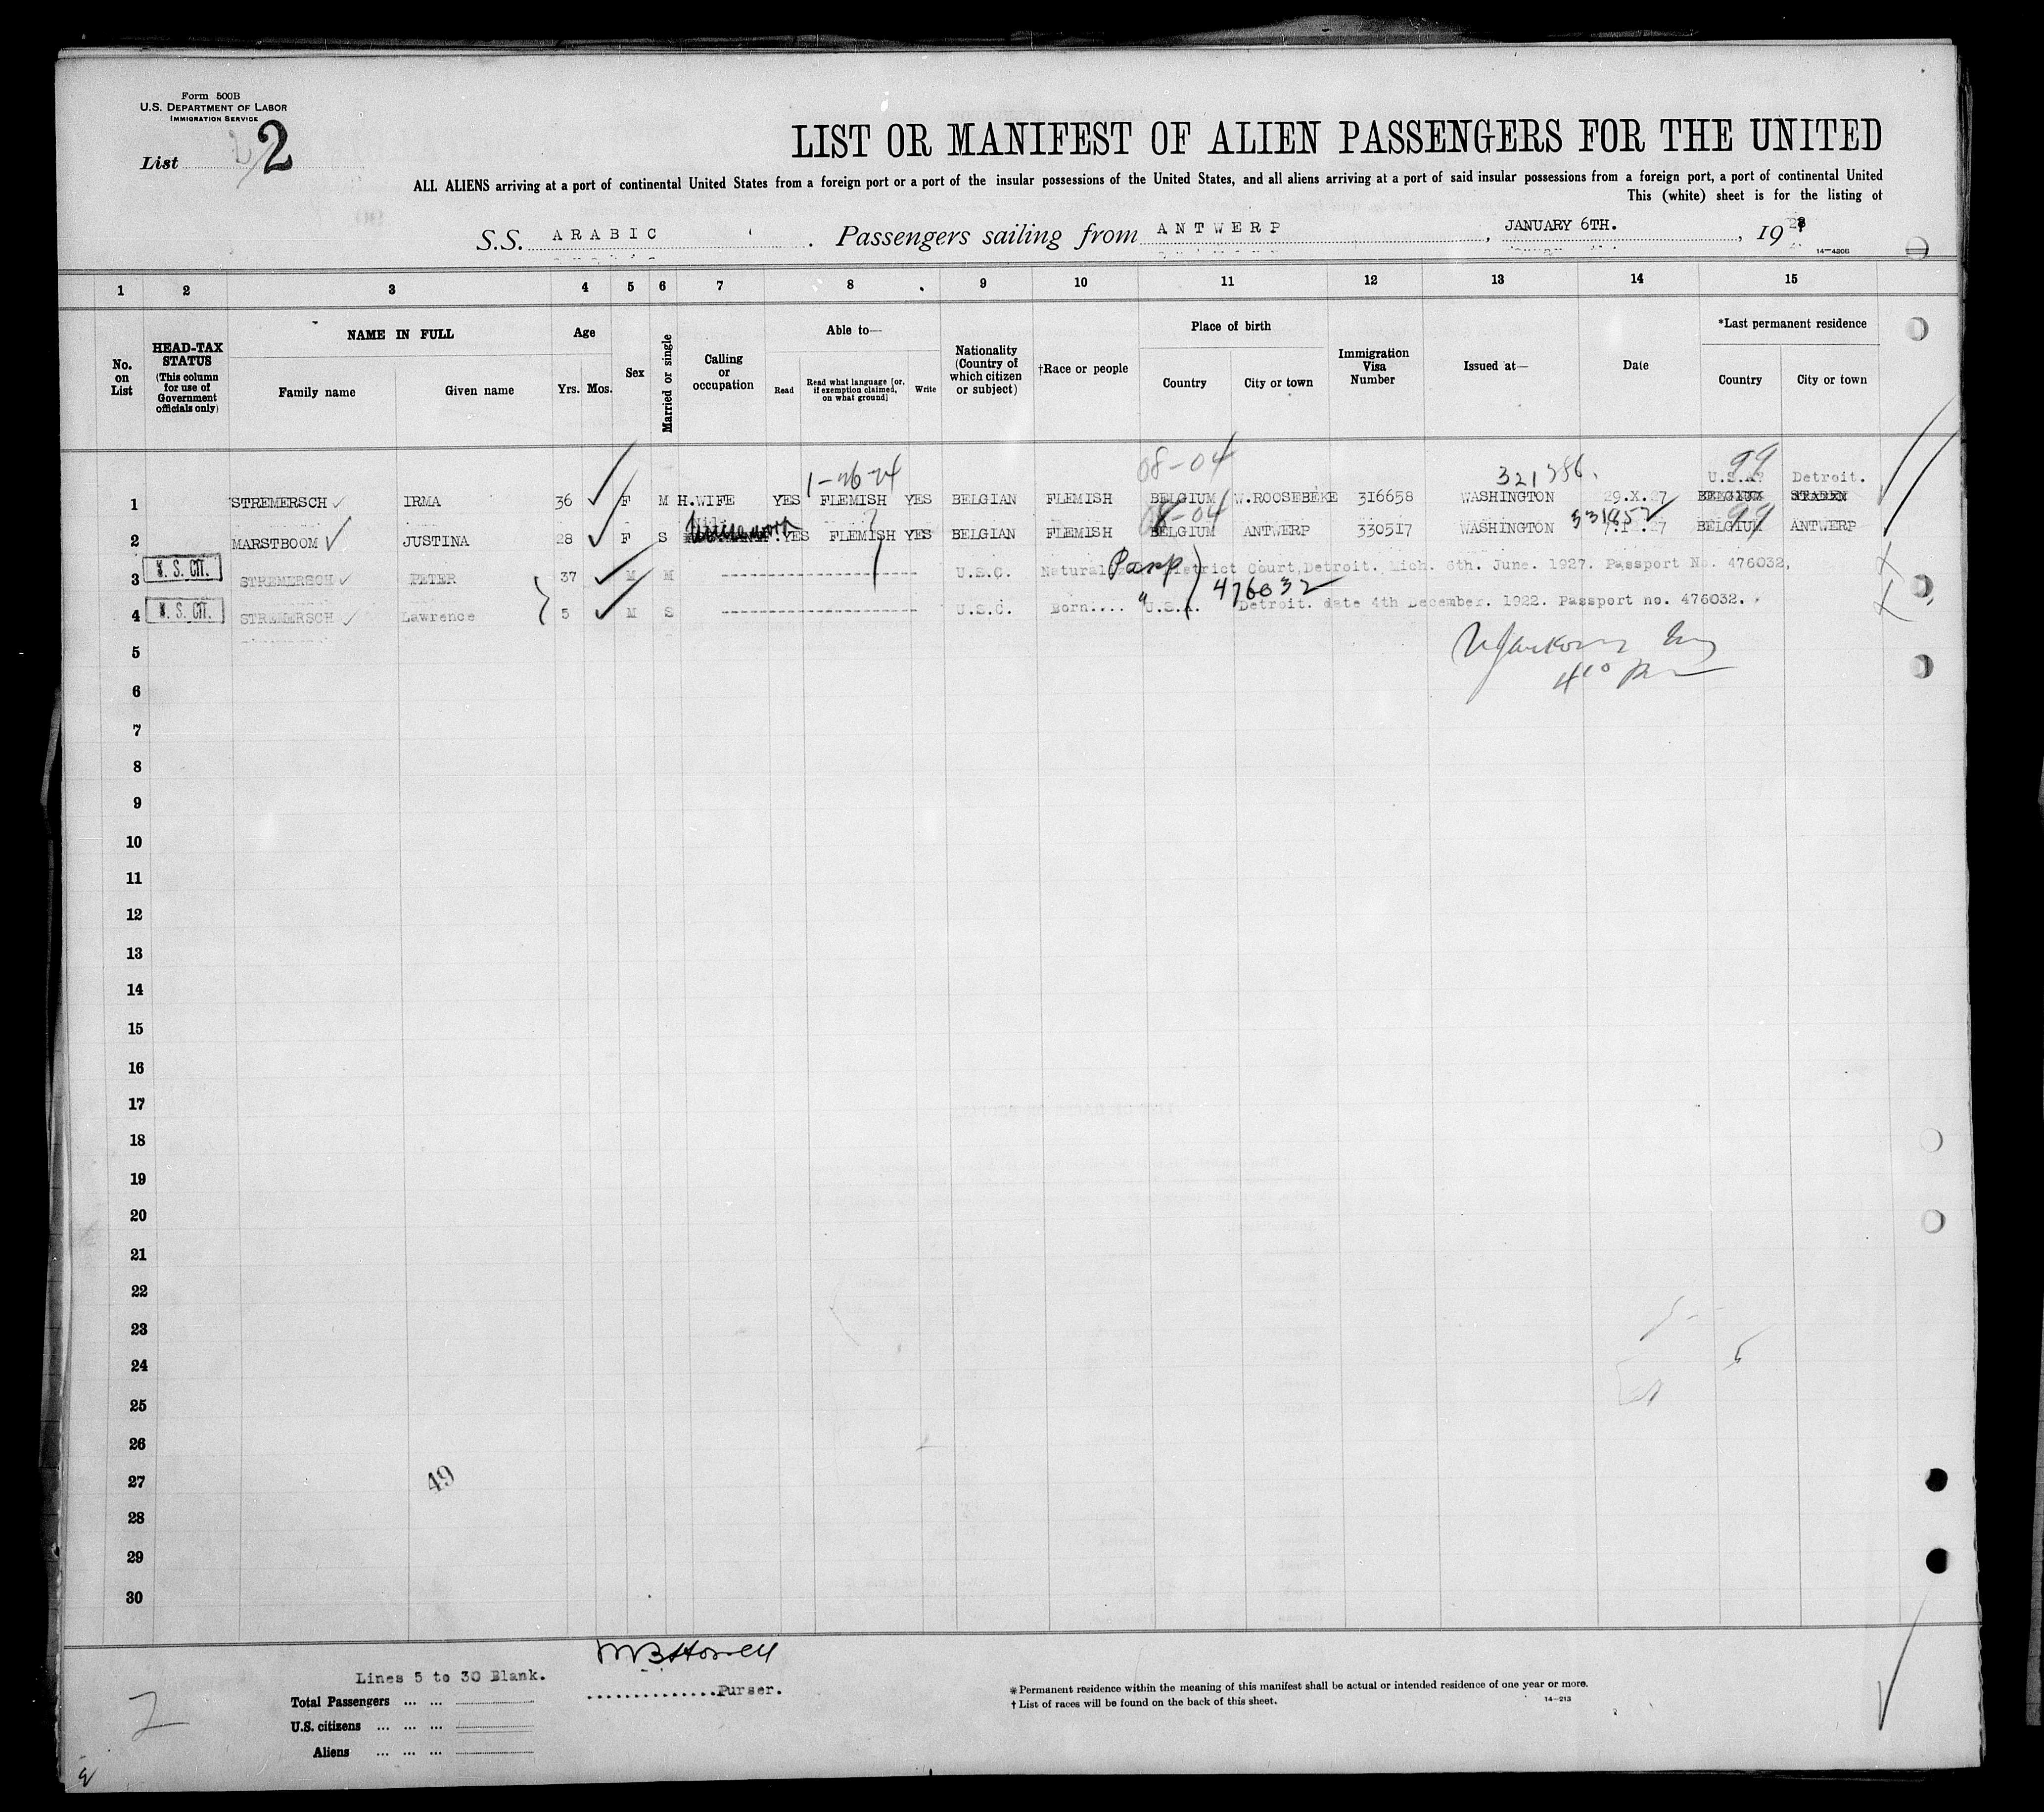 Form 500B
U.S. DEPARTMENT OF LABOR
IMMIGRATION SERVICE
List 2
LIST OR MANIFEST OF ALIEN PASSENGERS FOR THE UNITED
ALL ALIENS arriving at a port of continental United States from a foreign port or a port of the insular possessions of the United States, and all aliens arriving at a port of said insular possessions from a foreign port, a port of continental United
This (white) sheet is for the listing of
S.S. ARABIC . Passengers sailing from ANTWERP , JANUARY 6TH. , 1928
14—430B
1 2 3 4 5 6 7 8 9 10 11 12 13 14 15
No. on List
HEAD-TAX STATUS (This column for use of Government officials only)
NAME IN FULL Family name Given name
Age Yrs. Mos.
Sex
Married or single
Calling or occupation
Able to— Read Read what language [or, if exemption claimed, on what ground] Write
Nationality (Country of which citizen or subject)
†Race or people
Place of birth Country City or town
Immigration Visa Number
Issued at—
Date
*Last permanent residence Country City or town
1-26-24 08-04 321386. 99
U.S.A. Detroit.
1 STREMERSCH IRMA 36 F M H.WIFE YES FLEMISH YES BELGIAN FLEMISH BELGIUM W.ROOSEBEKE 316658 WASHINGTON 29.X.27 BELGIUM STADEN
Nil 08-04 331852 99
2 MARSTBOOM JUSTINA 28 F S YES FLEMISH YES BELGIAN FLEMISH BELGIUM ANTWERP 330517 WASHINGTON BELGIUM ANTWERP
U. S. CIT.
3 STREMERSCH PETER 37 M M U.S.C. Natural District Court, Detroit. Mich. 6th. June. 1927. Passport No. 476032,
476032
U. S. CIT.
4 STREMERSCH Lawrence 5 M S U.S.C. Born.... U.S.A. Detroit. date 4th December. 1922. Passport no. 476032.
5
6
7
8
9
10
11
12
13
14
15
16
17
18
19
20
21
22
23
24
25
26
27
49
28
29
30
Lines 5 to 30 Blank.
Total Passengers ... ...
U.S. citizens ... ... ...
Aliens ... ... ...
...............Purser.
*Permanent residence within the meaning of this manifest shall be actual or intended residence of one year or more.
†List of races will be found on the back of this sheet.
14—213
2